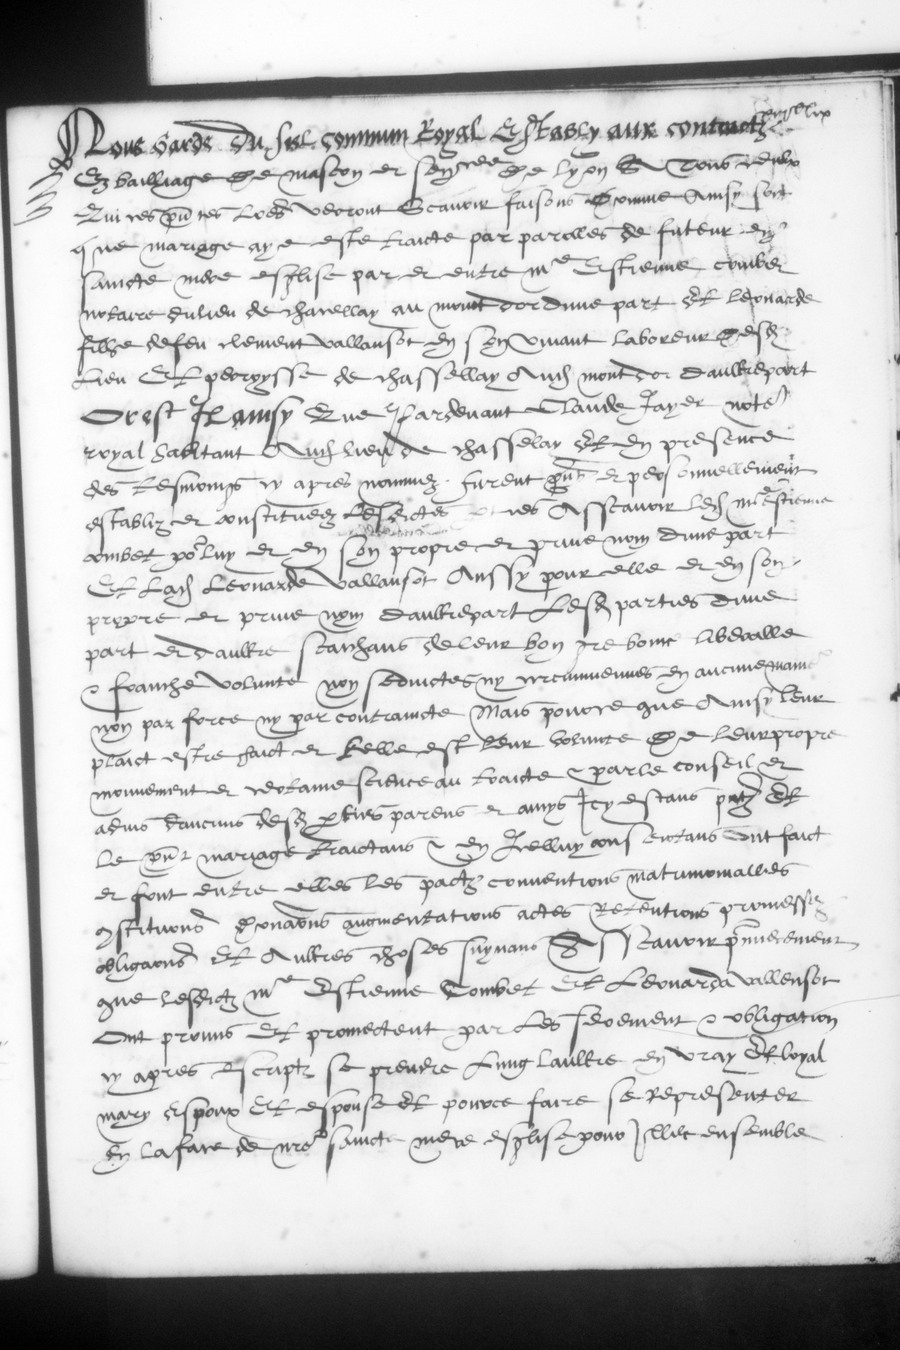 Nous Garde du seel commun Royal Estably aux contractz
Es bailliage de mascon et sen^cee de lyon A Tous ceulx
Qui ces p̃ntes Lrēs verront Scavoir faisons Comme Ainsy soit
que mariage aye esté traicte par parolles de futeur en
saincte mere esglise par et entre m^e Estienne combet
notaire du lieu de chasellay au mont dor dune part Et Leonarde
fille de feu clement vallansot en son vivant laboreur desd
Lieu Et perroysse de chassellay Aud mont dor daultrepart
Or est Il ainsy Que Pardevant Claude Jayer not^e
royal habitant Aud lieu de chasselay Et en presence
des tesmoings cy apres nommez furent p̃ns et personnellement
establiz et constitueez Lesdictes Asscavoir led m^e estienne
combet po^r luy et en son propre et prive nom dune part
Et Lad Leonarde vallansot Aussy pour elle et en son
propre et prive nom daultrepart Lesd parties dune
part et daultre scaichans de leur bon gre bonne liberalle
& franche volunte non seduictes ny circumvenues en aucune maniē
non par force ny par contraincte Mais pource que Ainsy leur
plaict estre faict et telle est leur volunte de leur propre
mouvement et certaine science au traicte & par le conseil et
advis daucuns desd parties parens et amys Icy estans p̃ntz Et
le p̃nt mariage traictans & en Icelluy consentans Ont faict
et font entre elles les pactz conventions matrimonialles
constitutions donaōns augmentations actes Retentions promesses
obligaōns Et Aultres choses suyvans Asscavoir p̃mierement
que lesdictz m^e Estienne Combet Et Leonarda vallensot
Ont promis Et promectent par Les serement & obligation
cy apres Escriptz se prendre Lung laultre en vray Et loyal
mary espoux Et espouse Et pource faire se Representer
En la face de nr̃e saincte mere esglise pour Illec ensemble